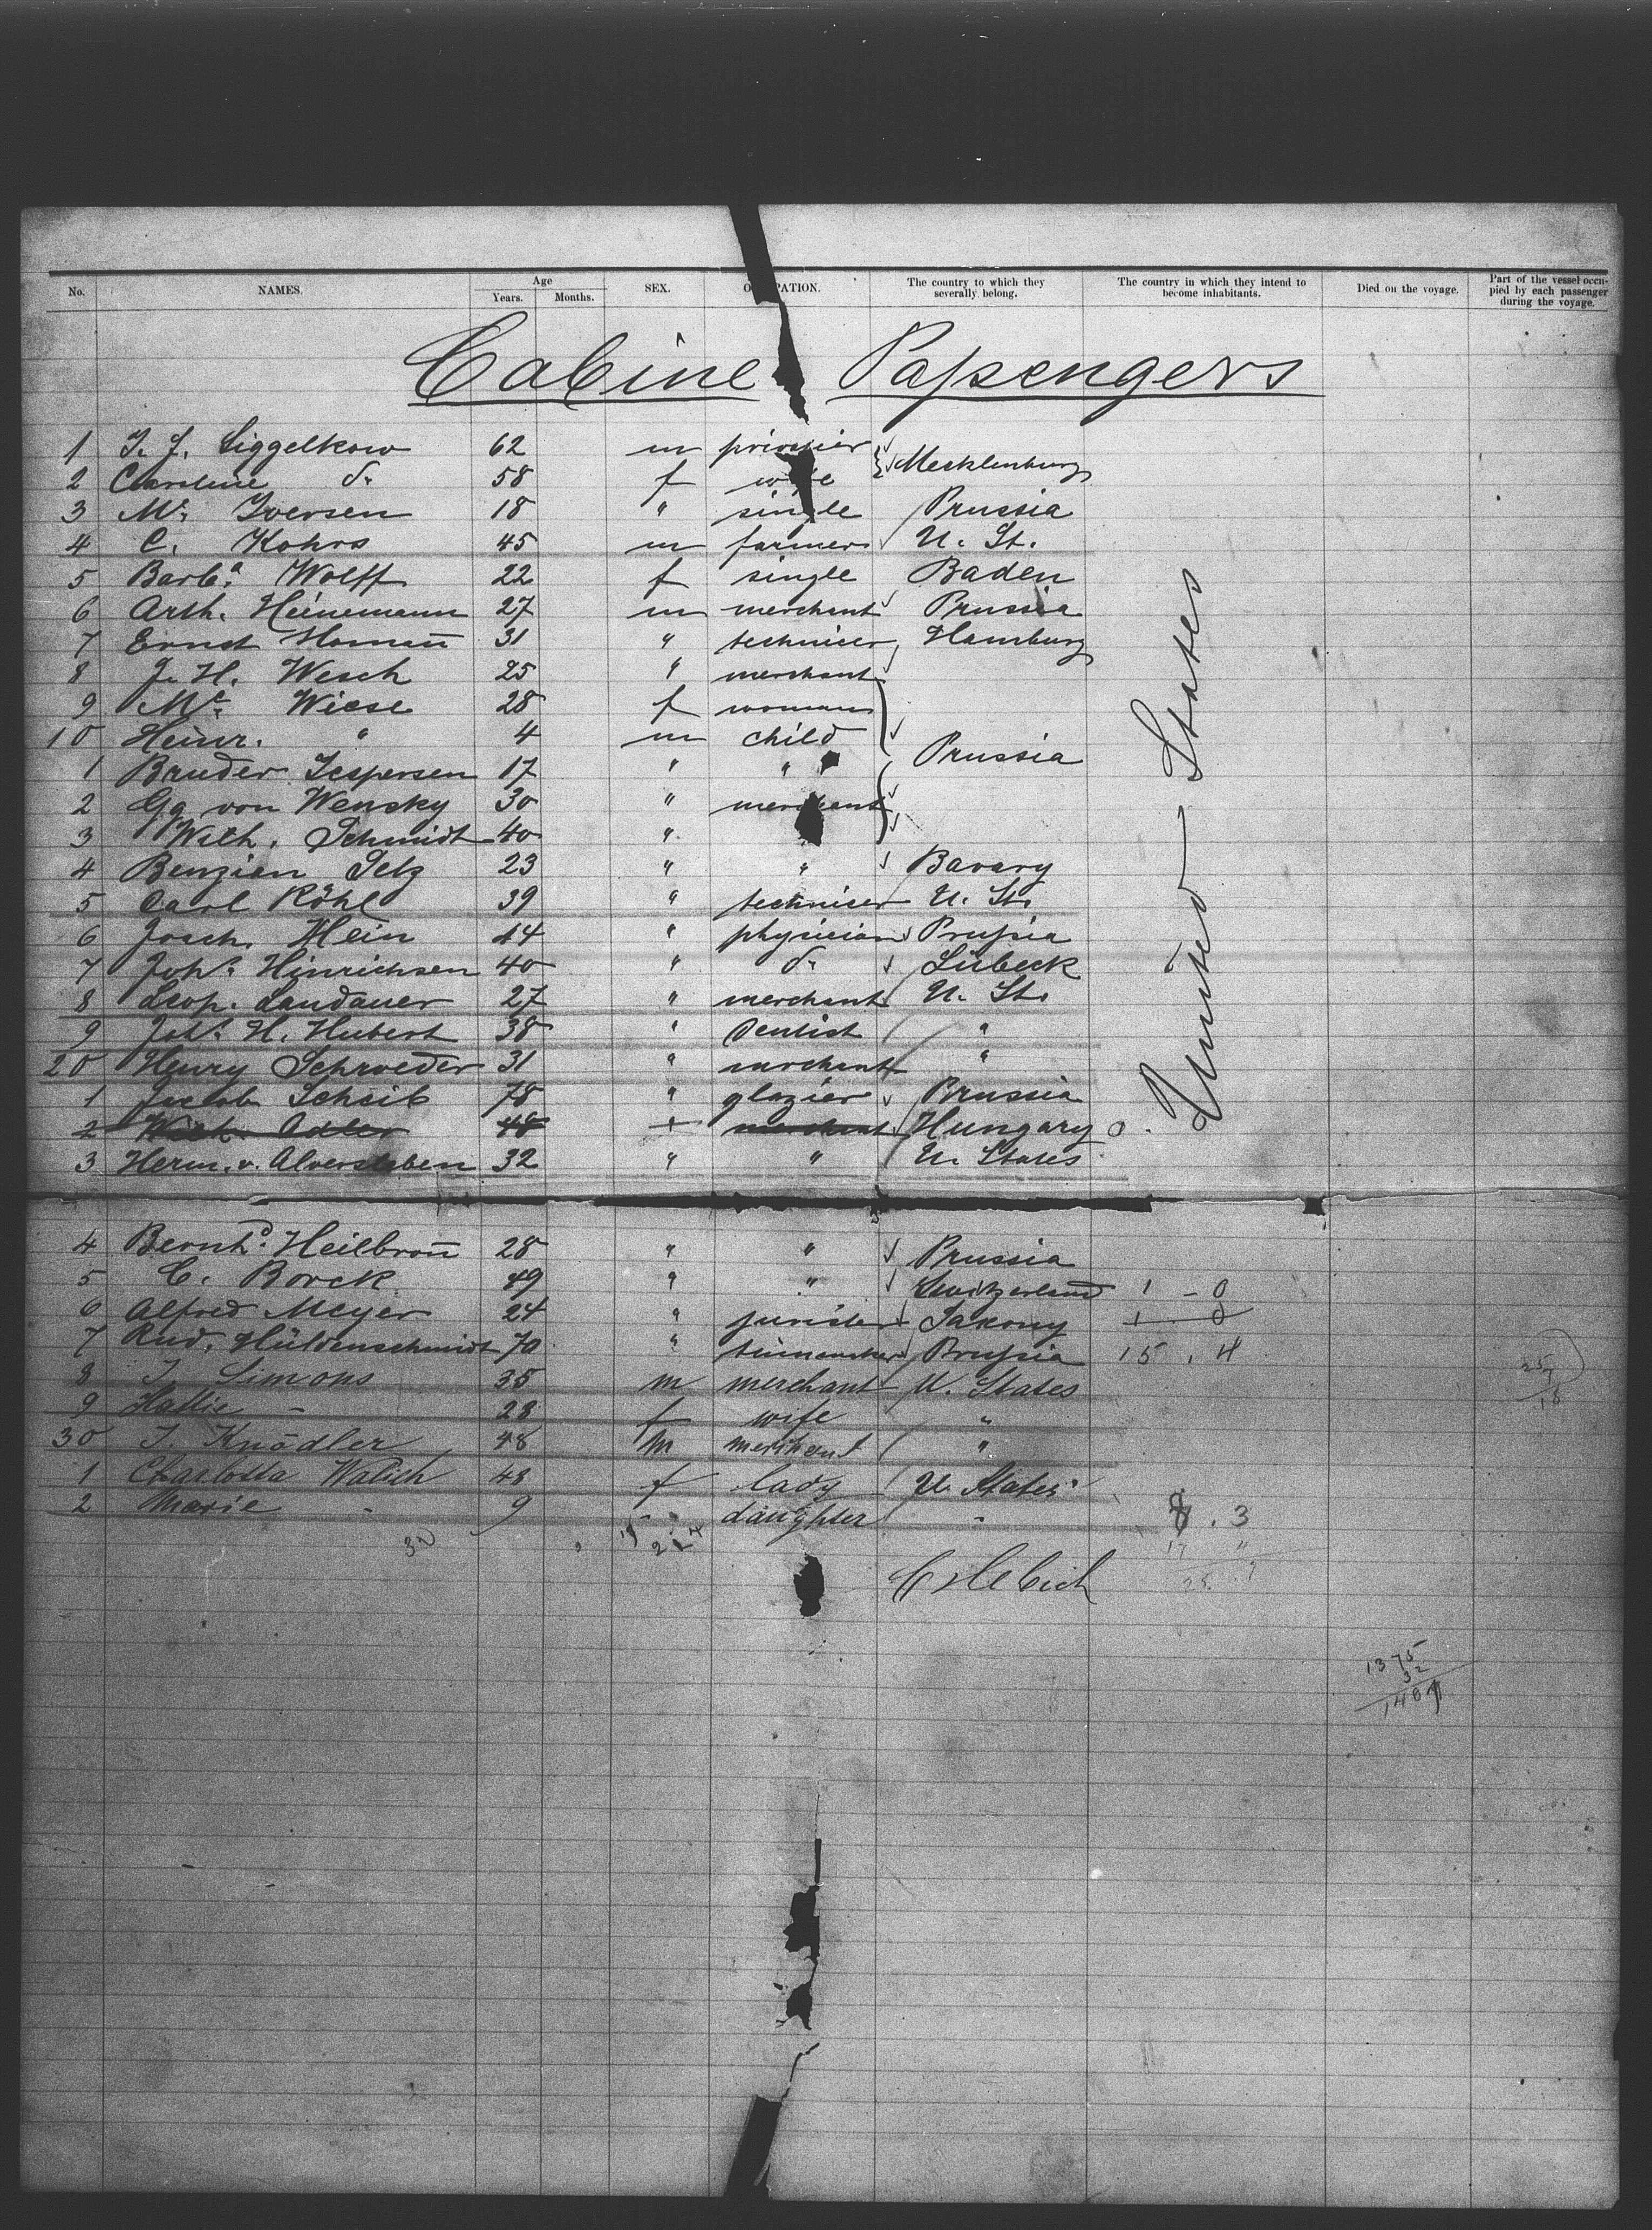 No. NAMES. Age Years. Months. SEX. OCCUPATION. The country to which they severally belong. The country in which they intend to become inhabitants. Died on the voyage. Part of the vessel occupied by each passenger during the voyage.
Cabine Passengers
1 J. J. Siggelkow 62 m Mecklenburg
2 Caroline do 58 f wife
3 Mr. Iversen 18 " single Prussia
4 C. Kohrs 45 m farmer U. St.
5 Barba. Wolff 22 f single Baden
6 Arth. Heinemann 27 m merchant Prussia
7 Ernst Homann 31 " technicer Hamburg
8 J. H. Wesch 25 " merchant
9 Me. Wiese 28 f woman
10 Heinr. " 4 m child
1 Bruder Jespersen 17 " " Prussia
2 Gg von Wensky 30 " merchant
3 Wilh. Schmidt 40 "
4 Benzien Selz 23 " " Bavary
5 Carl Röhl 39 " technicer U. St.
6 Joach. Hein 44 " physician Prussia
7 Johs. Hinrichsen 40 " do Lübeck
8 Leop. Landauer 27 " merchant U. St.
9 Johs. H. Hubert 38 " dentist "
20 Henry Schroeder 31 " merchant "
1 Jacob Scheib 78 " glazier Prussia
2 Wilh. Adler 48 merchant Hungary 0
3 Herm. v. Alversleben 32 " " U. States
United States
4 Bernhd. Heilbronn 28 " " Prussia
5 C. Borck 49 " " Switzerland 1 - 0
6 Alfred Meyer 24 " jurister Saxony 1 - 0
7 Rud. Hüldenschmidt 70 " Prussia 15 . 4
8 J. Simons 35 m merchant U. States
9 Hattie - 28 f wife "
30 J. Knödler 48 m merchant "
1 Charlotta Walich 48 f lady U. States
2 Marie - 9 - daughter - 8 . 3
32
1375
32
1407